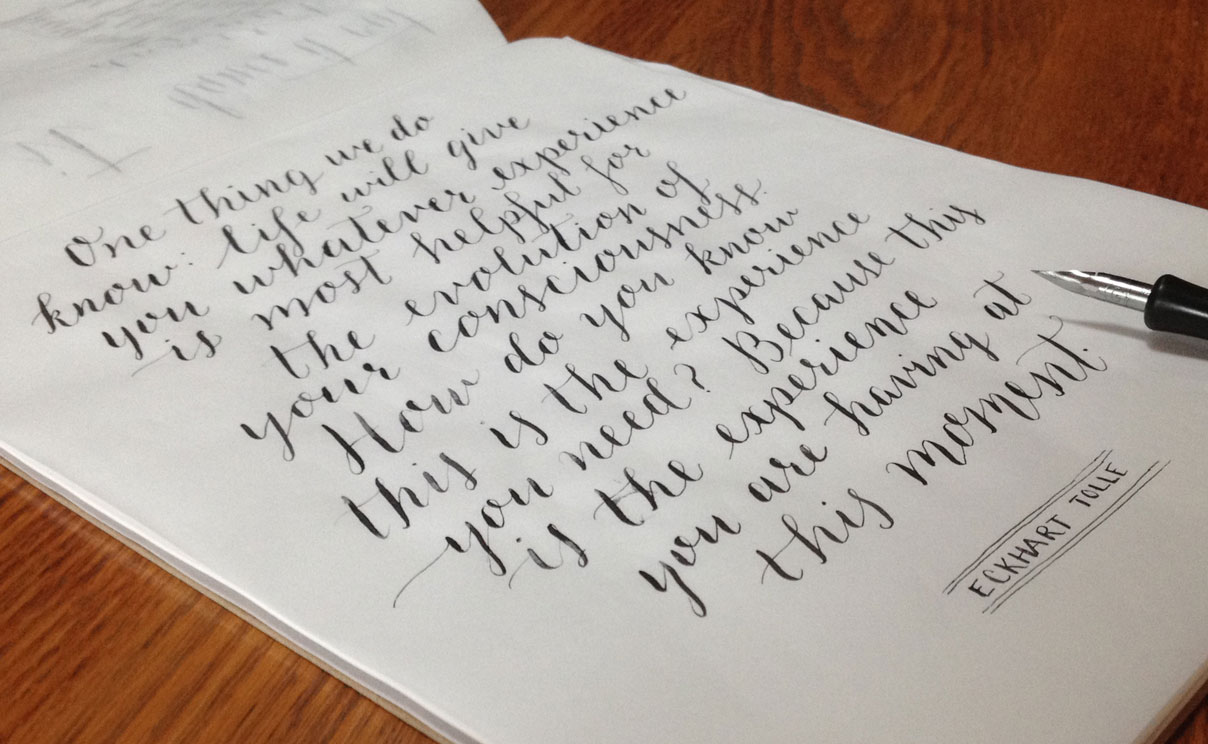 One thing we do
know: life will give
you whatever experience
is most helpful for
the evolution of
your consciousness.
How do you know
this is the experience
you need? Because this
is the experience
you are having at
this moment.
ECKHART TOLLE